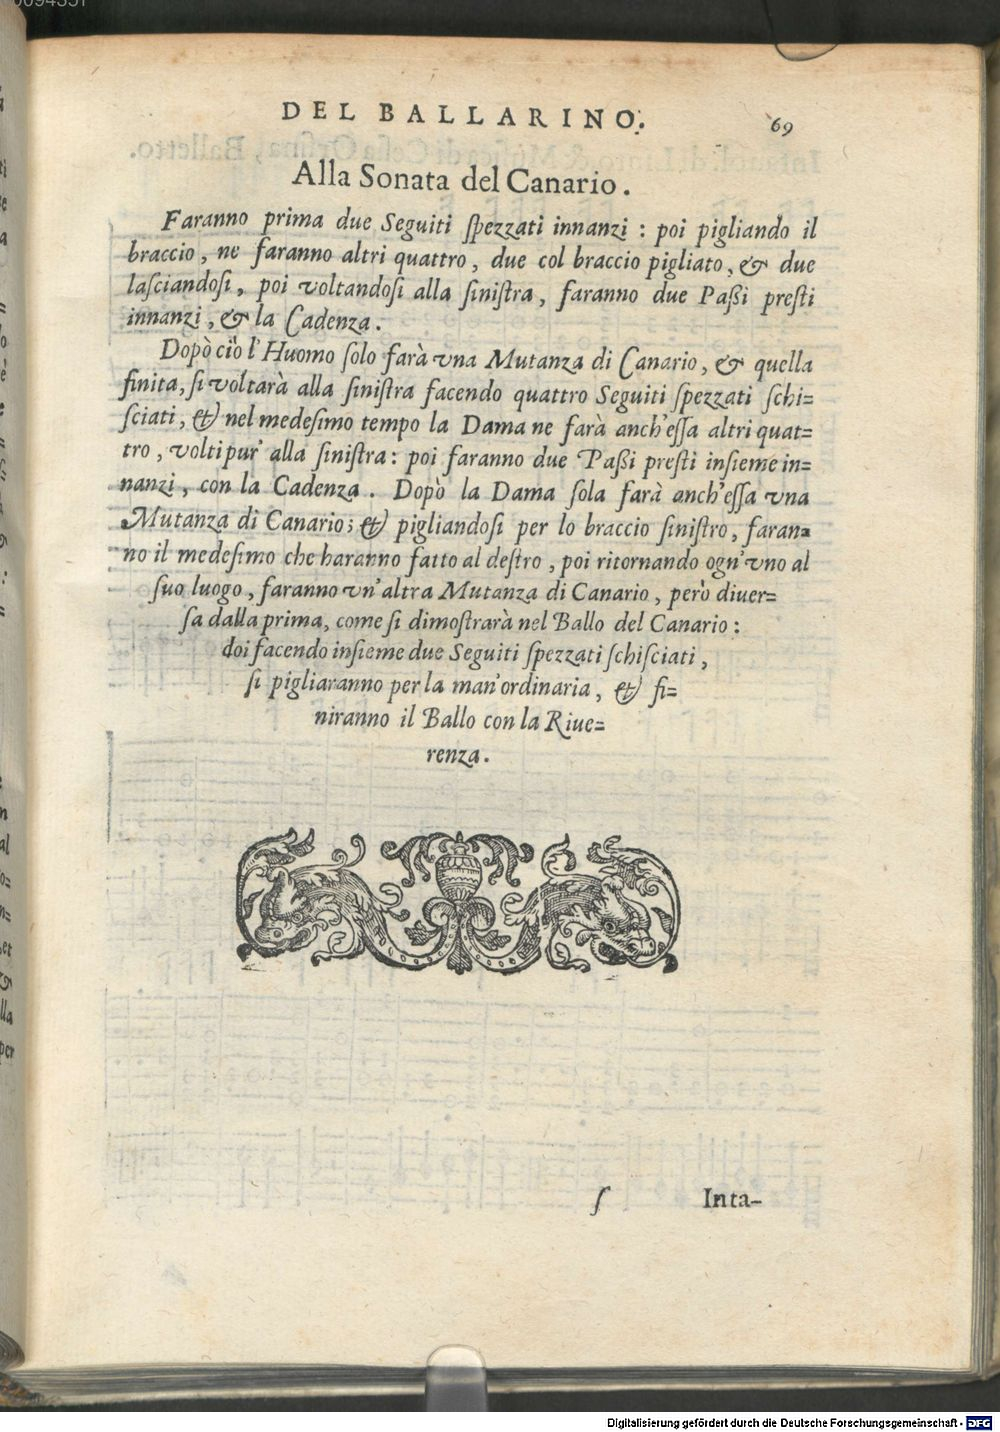 DEL BALLARINO.
69
Alla Sonata del Canario.
Faranno prima due Seguiti ſpezzati innanzi : poi pigliando il
braccio, ne faranno altri quattro, due col braccio pigliato, & due
laſciandoſi, poi voltandoſi alla ſiniſtra, faranno due Paßi preſti
innanzi, & la Cadenza.
Dopò ciò l'Huomo ſolo farà vna Mutanza di Canario, & quella
finita, ſi voltarà alla ſiniſtra facendo quattro Seguiti ſpezzati ſchi=
ſciati, & nel medeſimo tempo la Dama ne farà anch'eſſa altri quat=
tro, volti pur' alla ſiniſtra: poi faranno due Paßi preſti inſieme in=
nanzi, con la Cadenza. Dopò la Dama ſola farà anch'eſſa vna
Mutanza di Canario; & pigliandoſi per lo braccio ſiniſtro, faran=
no il medeſimo che haranno fatto al deſtro, poi ritornando ogn'vno al
ſuo luogo, faranno vn'altra Mutanza di Canario, però diuer=
ſa dalla prima, come ſi dimoſtrarà nel Ballo del Canario :
doi facendo inſieme due Seguiti ſpezzati ſchiſciati,
ſi pigliaranno per la man'ordinaria, & fi=
niranno il Ballo con la Riue=
renza.
ſ
Inta-
Digitalisierung gefördert durch die Deutsche Forschungsgemeinschaft - DFG